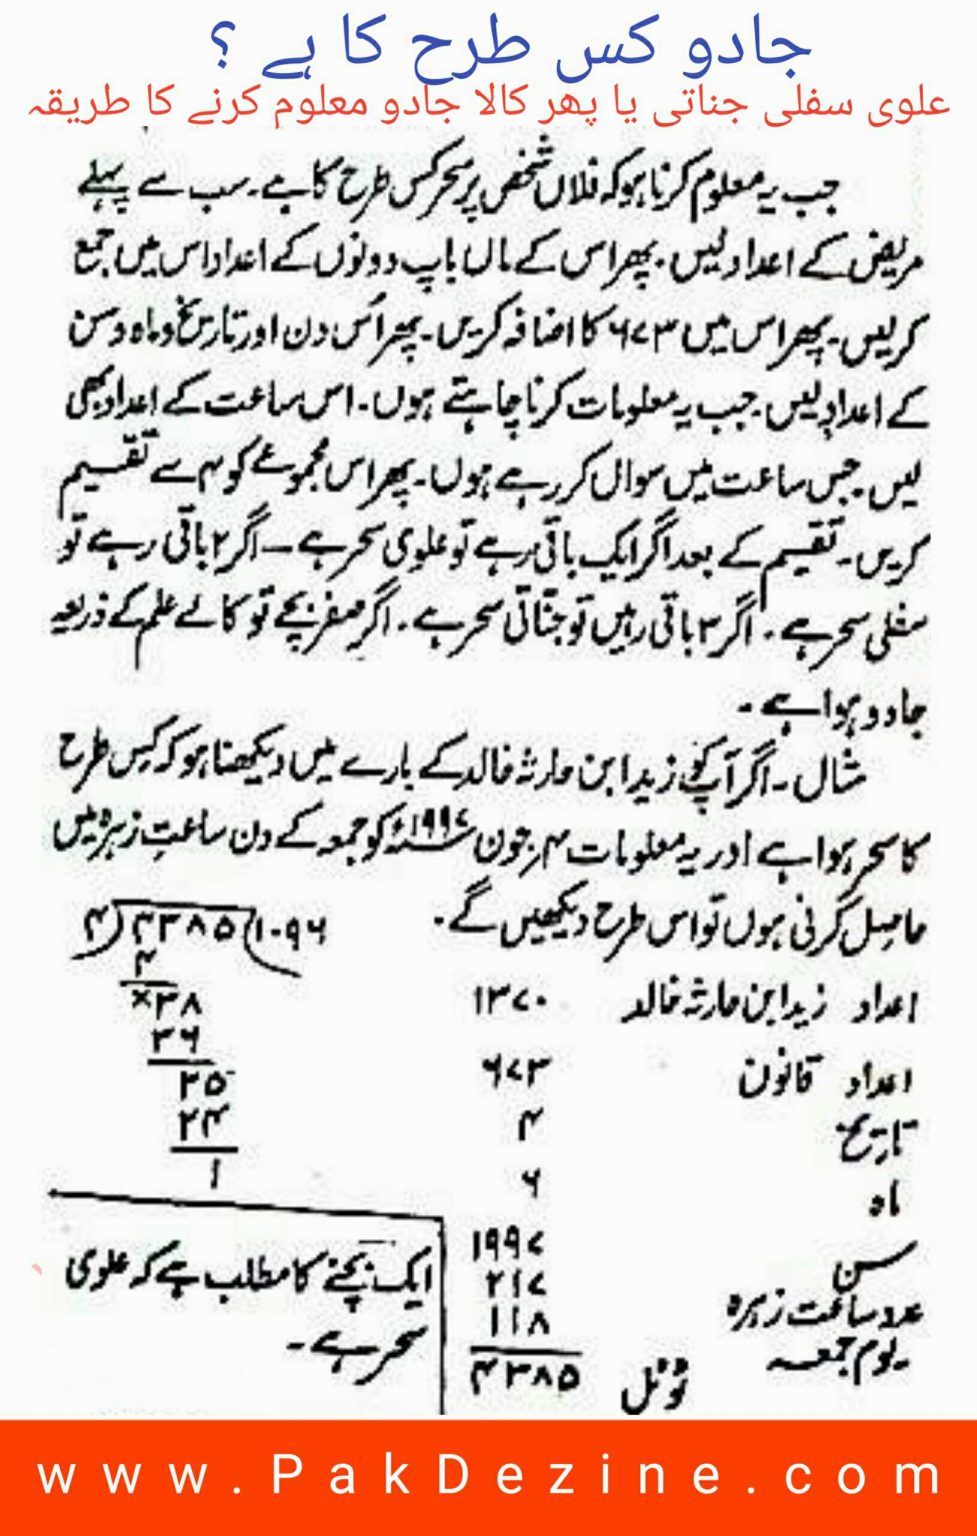 جادو کس طرح کا ہے ؟
علوی سفلی جناتی یا پھر کالا جادو معلوم کرنے کا طریقہ
جب یہ معلوم کرنا ہو کہ فلاں شخص پر سحر کس طرح کا ہے۔ سب سے پہلے
مریض کے اعداد لیں۔ پھر اس کے ماں باپ دونوں کے اعداد اس میں جمع
کر لیں۔ پھر اس میں ۶۷۳ کا اضافہ کریں۔ پھر اُس دن اور تاریخ و ماہ و سن
کے اعداد لیں۔ جب یہ معلومات کرنا چاہتے ہوں۔ اس ساعت کے اعداد بھی
لیں۔ جس ساعت میں سوال کر رہے ہوں۔ پھر اس مجموعے کو ۴ سے تقسیم
کریں۔ تقسیم کے بعد اگر ایک باقی رہے تو علوی سحر ہے – اگر ۲ باقی رہے تو
سفلی سحر ہے ۔ اگر ۳ باقی رہیں تو جنّاتی سحر ہے ۔ اگر صفر بچے تو کالے علم کے ذریعہ
جادو ہوا ہے ۔
مثال ۔ اگر آپ کو زید ابن حارثہ خالد کے بارے میں دیکھنا ہو کہ کس طرح
کا سحر ہوا ہے اور یہ معلومات ۴؍ جون ۱۹۹۷ء کو جمعہ کے دن ساعتِ زہرہ میں
حاصل کرنی ہوں تو اس طرح دیکھیں گے ۔
۴) ۴۳۸۵ (۱۰۹۶
۴
×۳۸
۳۶
۲۵
۲۴
۱
اعداد زید ابن حارثہ خالد ۱۳۷۰
اعداد قانون ۶۷۳
تاریخ ۴
ماہ ۶
سن ۱۹۹۷
عدد ساعت زہرہ ۲۱۷
یوم جمعہ ۱۱۸
ٹوٹل ۴۳۸۵
ایک بچنے کا مطلب ہے کہ علوی
سحر ہے ۔
www.PakDezine.com